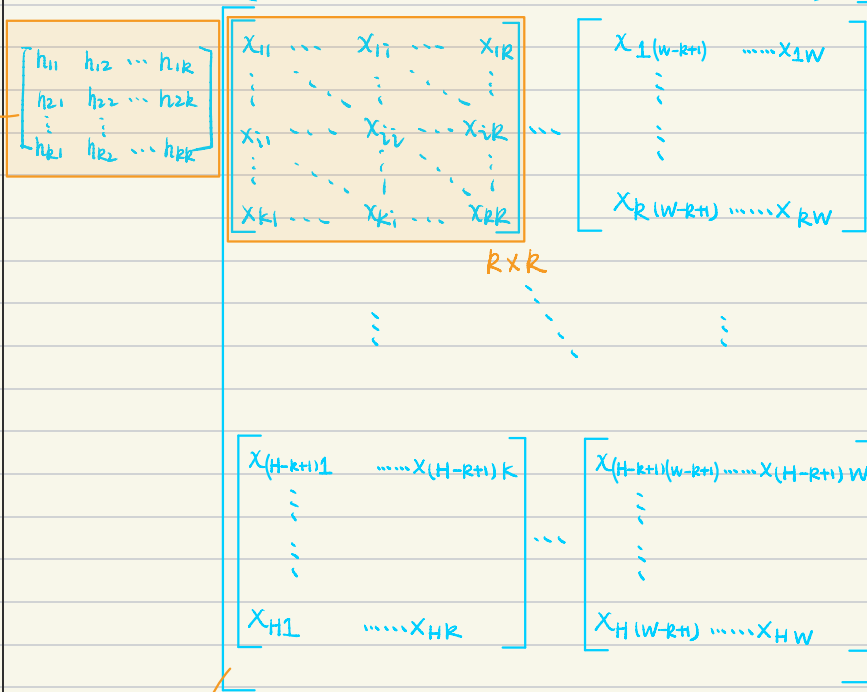 h11 h12 ... h1k
h21 h22 ... h2k
⋮ ⋮
hk1 hk2 ... hkk
x11 ... x1i ... x1k
⋮ ⋱ ⋮ ⋱ ⋮
xi1 ... xii ... xik
⋮ ⋱ ⋮ ⋱ ⋮
xk1 ... xki ... xkk
...
x1(w-k+1) ...... x1w
⋮
⋮
xk(w-k+1) ...... xkw
k×k
⋮ ⋱ ⋮
x(H-k+1)1 ...... x(H-k+1)k
⋮
⋮
xH1 ...... xHk
...
x(H-k+1)(w-k+1) ...... x(H-k+1)w
⋮
⋮
xH(w-k+1) ...... xHw